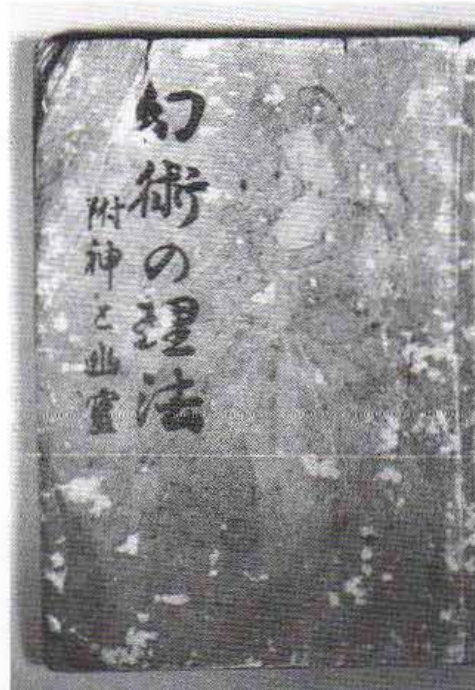 幻術の理法
附神と幽霊